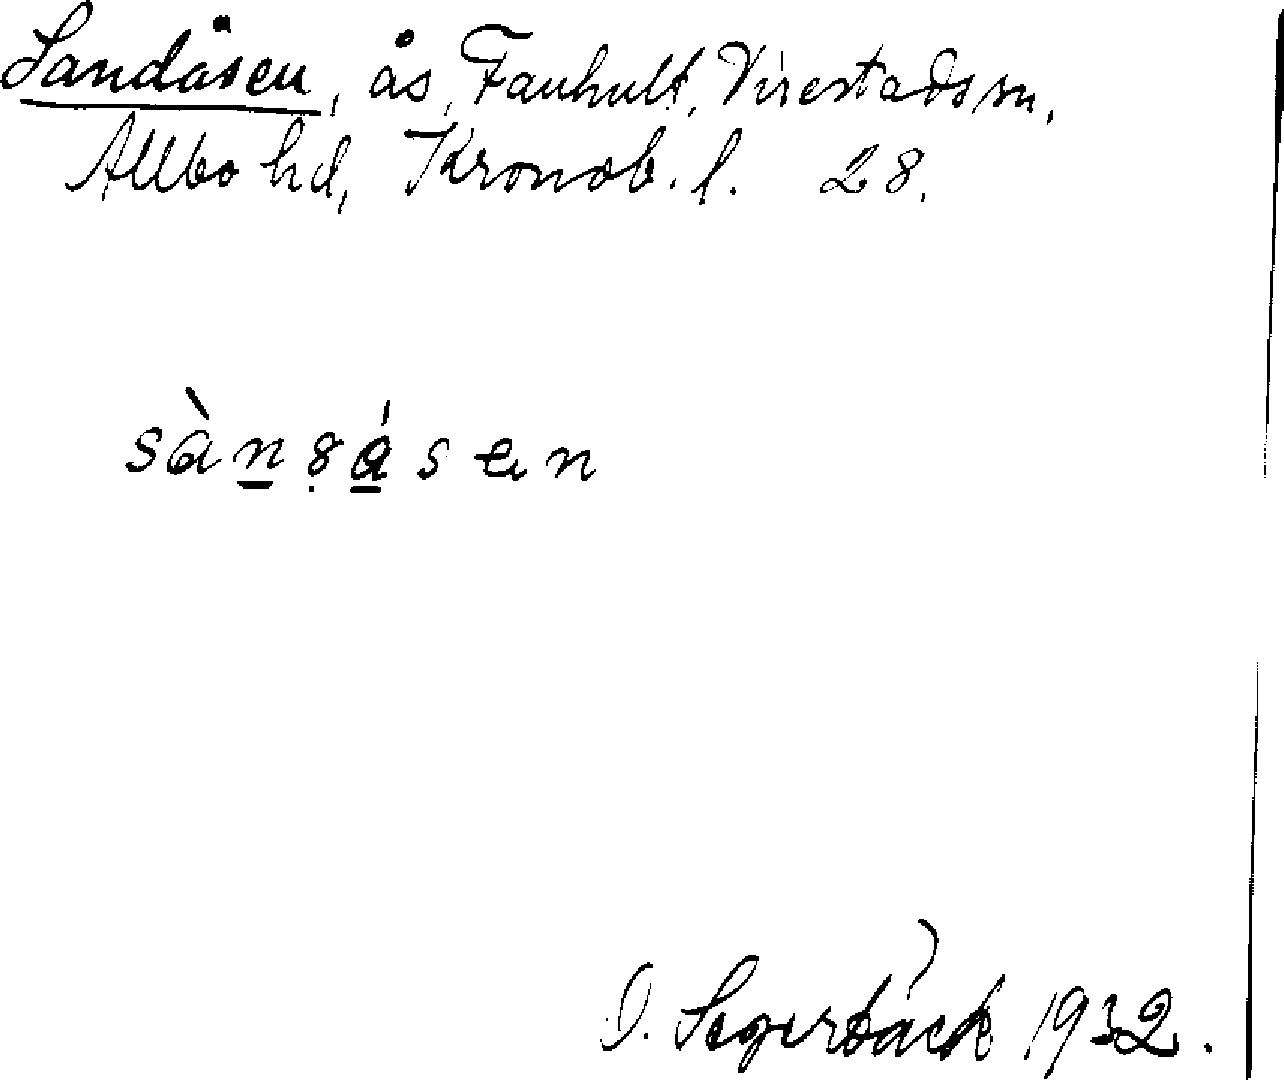 Sandåsen, ås, Fanhult, Virestads sn,
Allbo hd, Kronob. l. 28.
sàn̲ṣá̲sen
O. Segerbäck 1932.